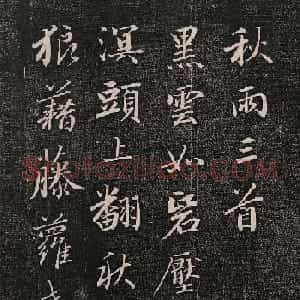 秋雨三首
黑雲如硯壓
溟頭上翻秋
狼藉藤蘿